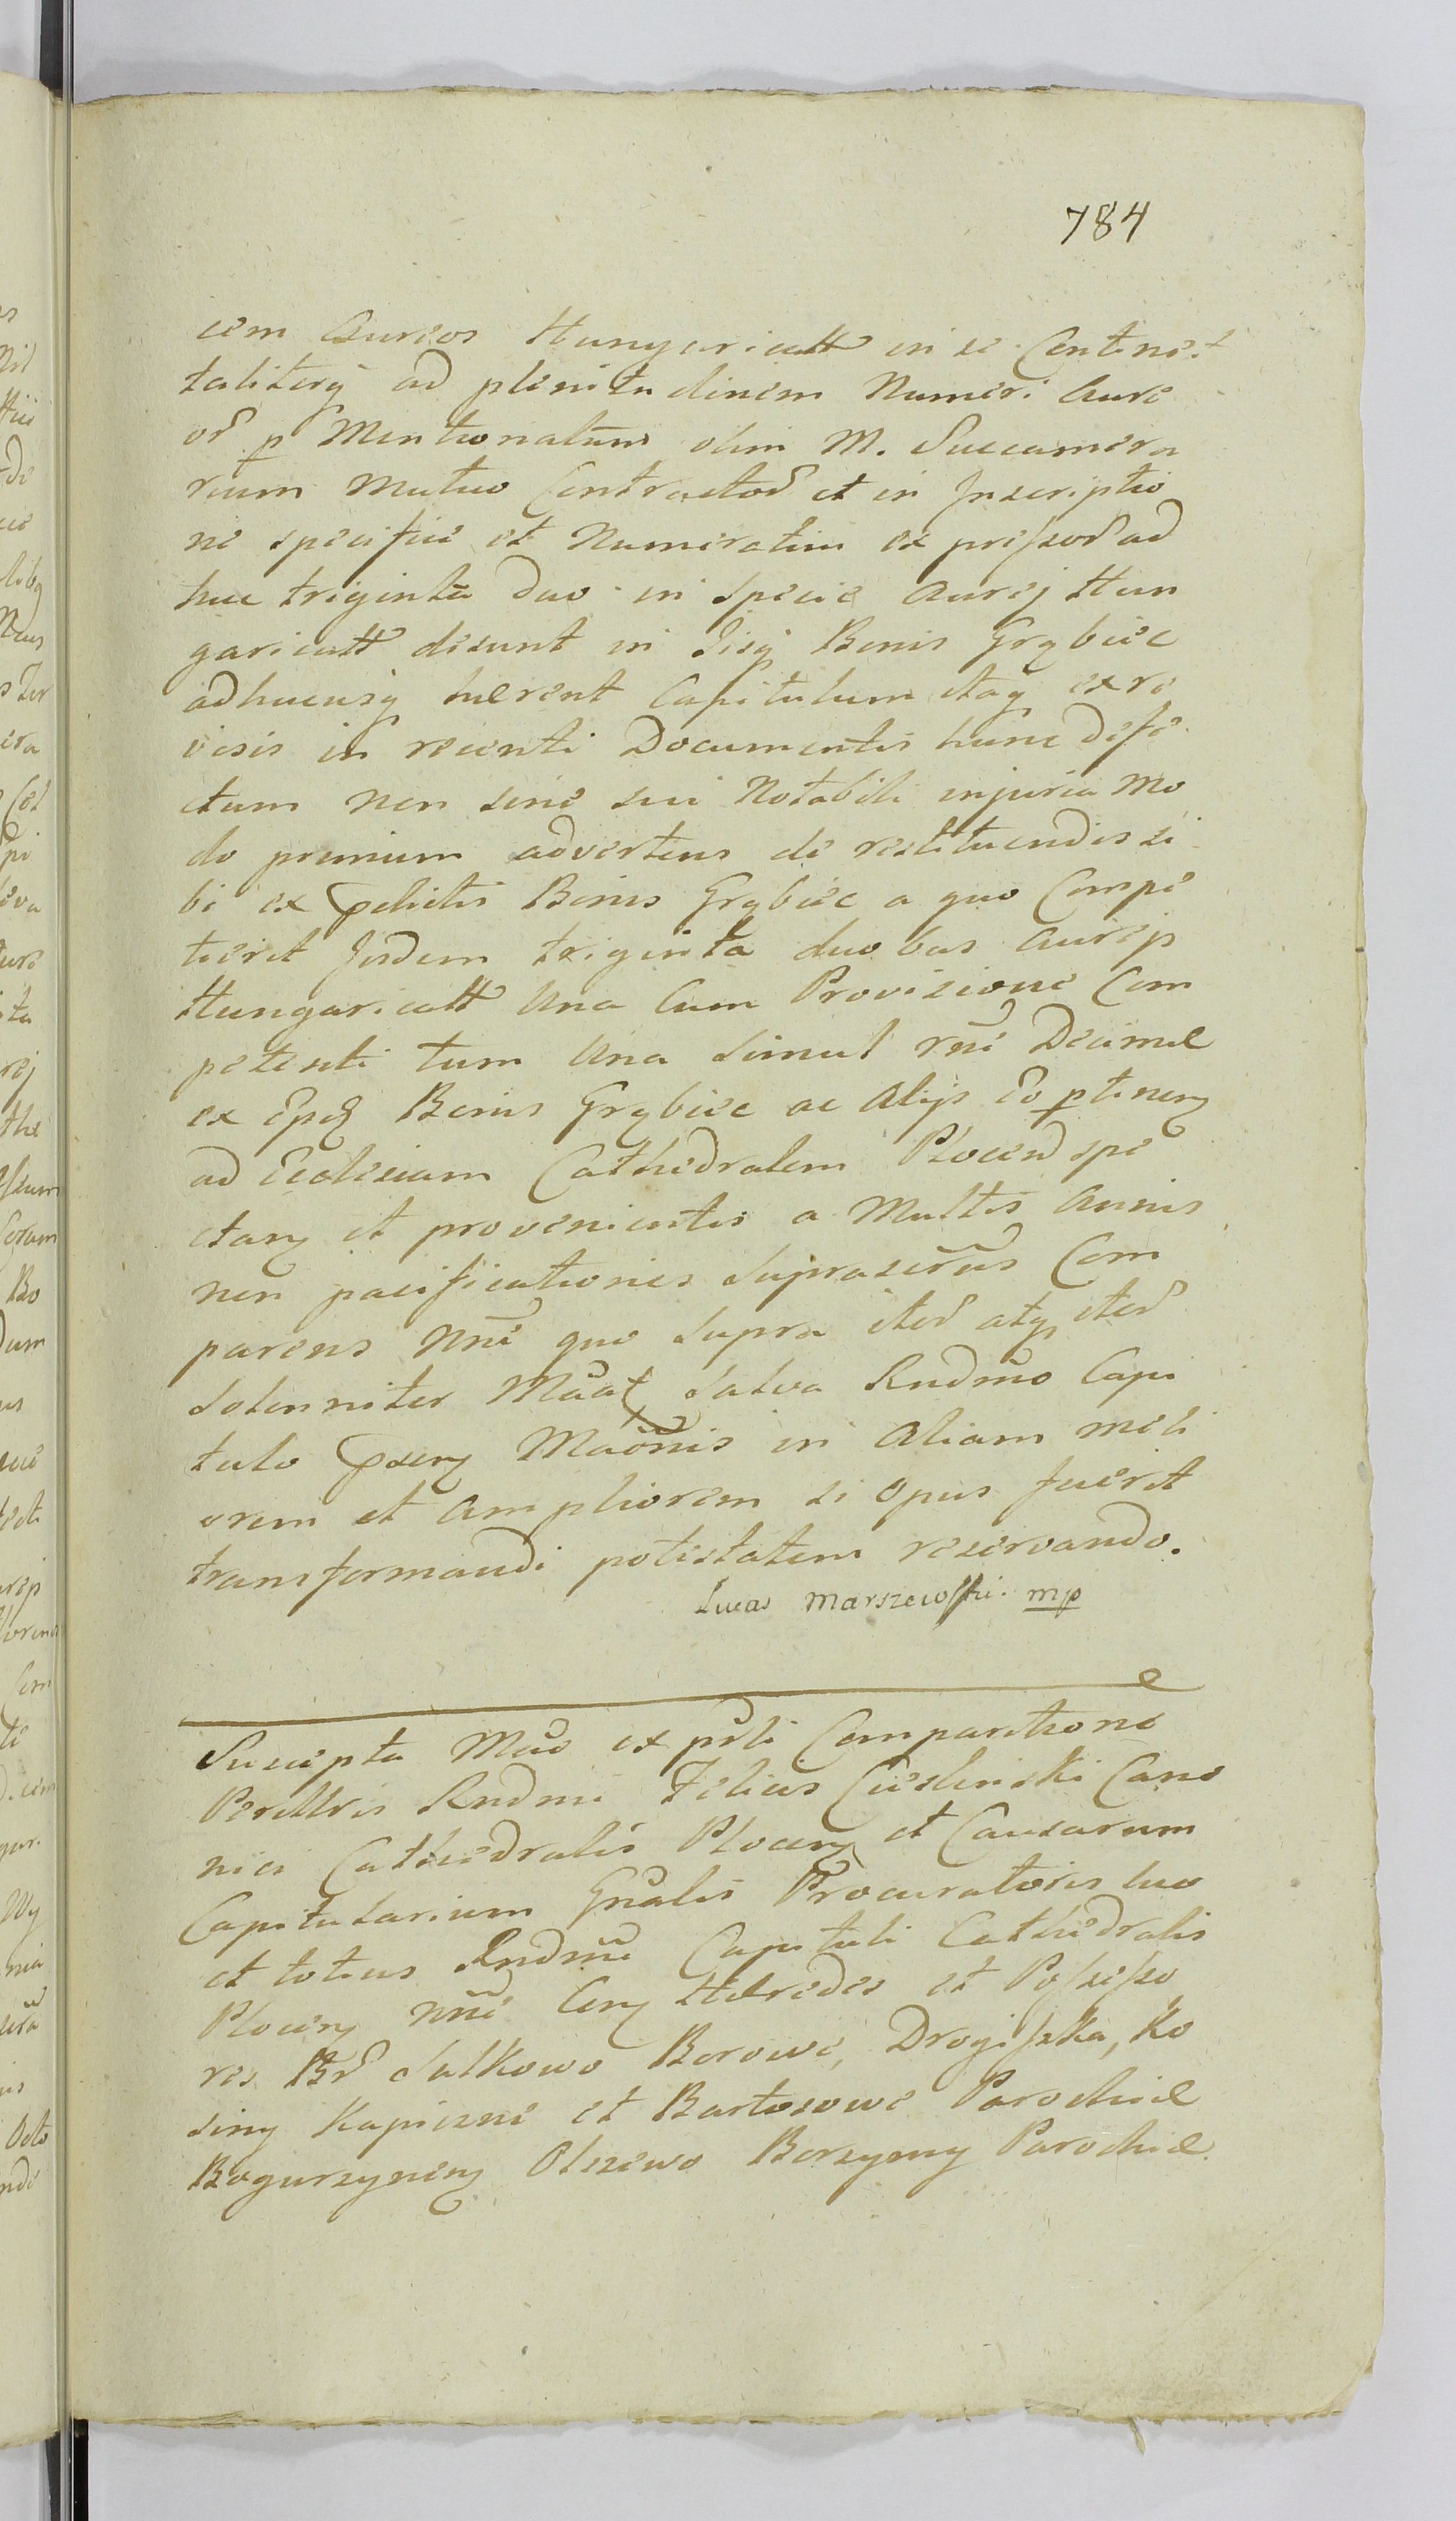 784
cem Aureos Hungaricatt in se Continet
taliterq ad plenitudinem Numeri Aure
or p Mentionatum olim M. Succamera
rium Mutuo Contractor et in Inscriptio
ne specifice et Numeratim expressor ad
huc triginta duo in specie Aurej Hun
garicatt desunt in Iisq Bonis Grzbiec
adhucusq hærent Capitulum itaq ex re
visis in recenti Documentis hunc defe
ctum non sine sui Notabili injuria mo
do primum advertens de restituendis si
bi ex pdictis Bonis Grzbiec a quo Compe
tierit Iisdem triginta duobus Aureis
Hungaricatt Una Cum Provisione Com
petenti tum Una Simul rnè Decimæ
ex Eisd Bonis Grzbiec ac Alijs Eo ptinen
ad Ecclesiam Cathedralem Plocen spe
ctan et provenientis a Multis Annis
non pacificationis Suprascrus Com
parens Nnè quo Supra iter atq iter
Solenniter Maat Salva Rndmo Capi
tulo psens Maōnis in Aliam meli
orem et Ampliorem si Opus fuerit
transformandi potestatem reservando.
Lucas Marszewski mp
Suscepta Mao ex psti Comparitione
Perillris Rndmi Felicis Cieslinski Cano
nici Cathedralis Plocen et Causarum
Capitularium Gnalis Procuratoris suo
et totius Rndmi Capituli Cathedralis
Plocen Nnè Con Hæredes et Possesso
res Br Sulkowo Borowe, Drogiszka, Ko
siny Kapiczne et Bartosowe Parochiæ
Bogurzynen Olszewo Borzymy Parochiæ